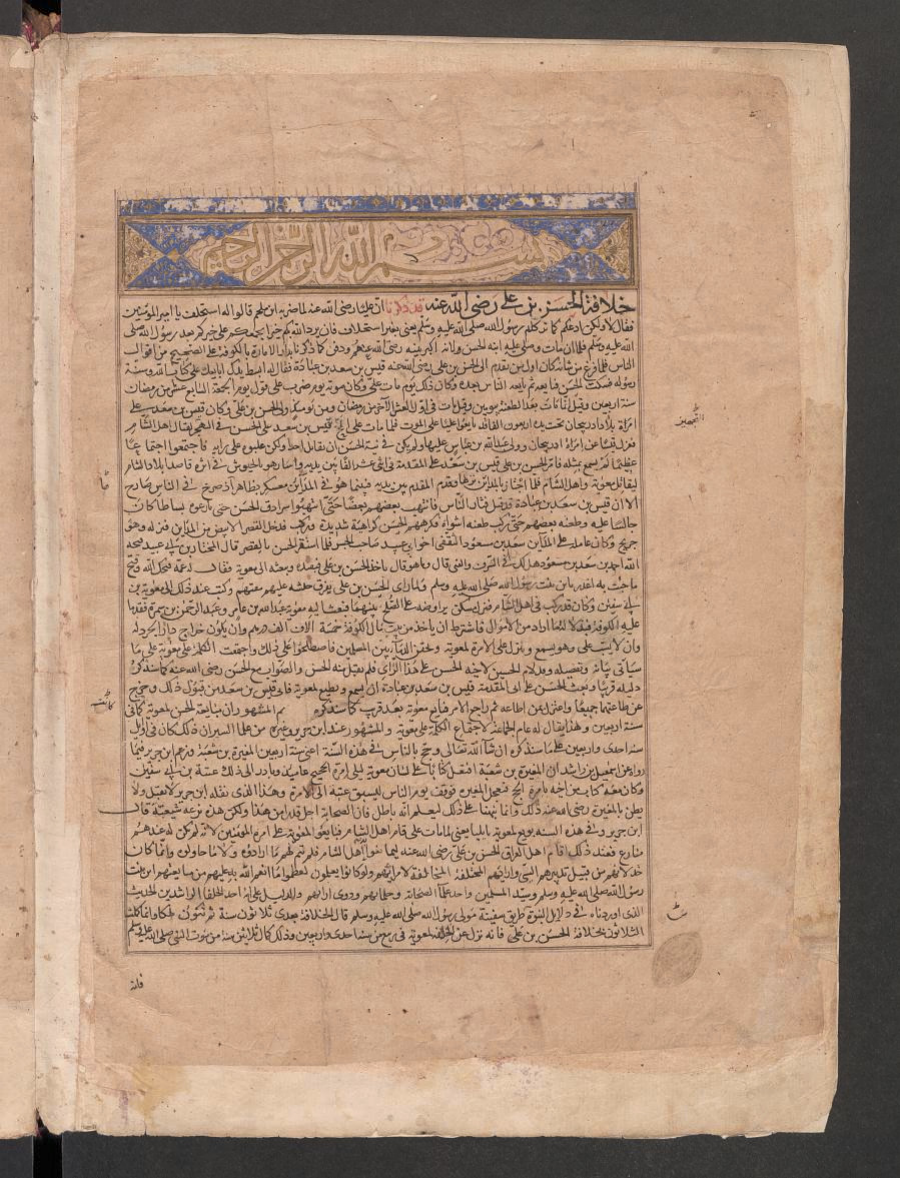 بسم الله الرحمن الرحيم
خلافة الحسن بن علي رضى الله عنه قد ذكرنا ان عليا رضى الله عنه لما ضربه ابن ملجم قالوا له استخلف يا امير المومنين
فقال لا ولكن ادعكم كما ترككم رسول الله صلى الله عليه وسلم يعني بغير استخلاف فان يرد الله بكم خيرا يجمعكم على خيركم بعد رسول الله صلى
الله عليه وسلم فلما ان مات وصلى عليه ابنه الحسن ولانه اكبر بنيه رضى الله عنهم ودفن كما ذكرنا بدار الامارة بالكوفة على الصحيح من اقوال
الناس فلما فرغ من شانه كان اول من تقدم الى الحسن بن علي رضى الله عنه قيس بن سعد بن عبادة فقال له ابسط يدك ابايعك على كتاب الله وسنة
رسوله فسكت الحسن فبايعه ثم بايعه الناس بعده وكان ذلك يوم مات علي وكان موته يوم ضرب على قول يوم الجمعة السابع عشر من رمضان
سنة اربعين وقيل انما مات بعد الطعنة بيومين وقيل مات في العشر الاخر من رمضان ومن يومئذ ولي الحسن بن علي وكان قيس بن سعد على
امرة بلاد اذربيجان تحت يده اربعون الف مقاتل قد بايعوا عليا على الموت فلما مات علي الح قيس بن سعد على الحسن في النفير لقتال اهل الشام
فعزل قيسا عن امرة اذربيجان وولى عبيد الله بن عباس عليها ولم يكن في نية الحسن ان يقاتل احدا ولكن غلبوه على رايه فاجتمعوا اجتماعا
عظيما لم يسمع بمثله فامر الحسن بن علي قيس بن سعد على المقدمة في اثنى عشر الفا بين يديه وسار هو بالجيوش في اثره قاصدا بلاد الشام
ليقاتل معوية واهل الشام فلما اجتاز بالمداين نزلها وقدم المقدمة بين يديه فبينما هو في المداين معسكر بظاهرها اذ صرخ في الناس صارخ
الا ان قيس بن سعد بن عبادة قد قتل فثار الناس فانتهب بعضهم بعضا حتى انتهبوا سرادق الحسن حتى نازعوه بساطا كان
جالسا عليه وطعنه بعضهم حين ركب طعنة اشووه فكرههم الحسن كراهية شديدة وركب فدخل القصر الابيض من المداين فنزله وهو
جريح وكان عامله على المداين سعد بن مسعود الثقفي اخو ابي عبيد صاحب الجسر فلما استقر الحسن بالقصر قال المختار بن ابي عبيد قبحه
الله لعمه سعد بن مسعود هل لك في الشرف والغنى قال وما هو قال تاخذ الحسن بن علي فتقيده وتبعثه الى معوية فقال له عمه قبحك الله وقبح
ما جئت به اغدر بابن بنت رسول الله صلى الله عليه وسلم ولما راى الحسن بن علي تفرق جيشه عليه مقتهم وكتب عند ذلك الى معوية بن
ابي سفين وكان قد ركب في اهل الشام فنزل مسكن يراوضه على الصلح بينهما فبعث اليه معوية عبد الله بن عامر وعبد الرحمن بن سمرة فقدما
عليه الكوفة فبذلا له ما اراد من الاموال فاشترط ان ياخذ من بيت مال الكوفة خمسة الاف الف درهم وان يكون خراج دارابجرد له
وان لا يسب علي وهو يسمع وينزل على الامرة لمعوية ويحقن الدماء بين المسلمين فاصطلحوا على ذلك واجتمعت الكلمة على معوية على ما
سياتي بيانه وتفصيله وقد لام الحسين لاخيه الحسن على هذا الراي فلم يقبل منه الحسن والصواب مع الحسن رضى الله عنه كما سنذكر
دليله قريبا وبعث الحسن بن علي الى امير المقدمة قيس بن سعد بن عبادة ان يسمع ويطيع لمعوية فابى قيس بن سعد من قبول ذلك وخرج
عن طاعتهما جميعا واعتزل بمن اطاعه ثم راجع الامر فبايع معوية بعد قريب كما سنذكره ثم المشهور ان مبايعة الحسن لمعوية كانت في
سنة اربعين ولهذا يقال له عام الجماعة لاجتماع الكلمة على معوية والمشهور عند ابن جرير وغيره من علما السير ان ذلك كان في اوايل
سنة احدى واربعين على ما سنذكره ان شا الله تعالى وحج بالناس في هذه السنة اعني سنة اربعين المغيرة بن شعبة وزعم ابن جرير فيما
رواه عن اسمعيل بن راشد ان المغيرة بن شعبة افتعل كتابا على لسان معوية ليلي امرة الحجيج عامئذ وبادر الى ذلك عتبة بن ابي سفين
وكان معه كتاب من اخيه بامرة الحج فتعجل المغيرة فوقف يوم الناس ليسبق عتبة الى الامرة وهذا الذى نقله ابن جرير لا يقبل ولا
يظن بالمغيرة رضى الله عنه ذلك وانما نبهنا على ذلك ليعلم انه باطل فان الصحابة اجل قدرا من هذا ولكن هذه نزعة شيعية قال
ابن جرير وفي هذه السنة بويع لمعوية بايليا يعني لما مات علي قام اهل الشام فبايعوا لمعوية على امرة المومنين لانه لم يكن له عندهم
منازع فعند ذلك اقام اهل العراق الحسن بن علي رضى الله عنه ليمانعوا اهل الشام فلم يتم لهم ما ارادوه ولا ما حاولوه وانما كان
خذلانهم من قبل تدبيرهم السي وارايهم المختلفة المخالفة لامرايهم ولو كانوا يعلمون لعظموا ما انعم الله به عليهم من مبايعتهم ابن بنت
رسول الله صلى الله عليه وسلم وسيد المسلمين واحد علما الصحابة وحلمايهم وذوى ارايهم والدليل على انه احد الخلفا الراشدين الحديث
الذى اوردناه في دلايل النبوة من طريق سفينة مولى رسول الله صلى الله عليه وسلم قال الخلافة بعدي ثلاثون سنة ثم تكون ملكا وانما كملت
الثلاثون بخلافة الحسن بن علي فانه نزل عن الخلافة لمعوية في ربيع من سنة احدى واربعين وذلك كمال ثلاثين سنة من موت النبي صلى الله عليه وسلم
فانه